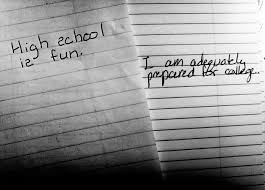 High school
is fun.
I am adequately
prepared for college.